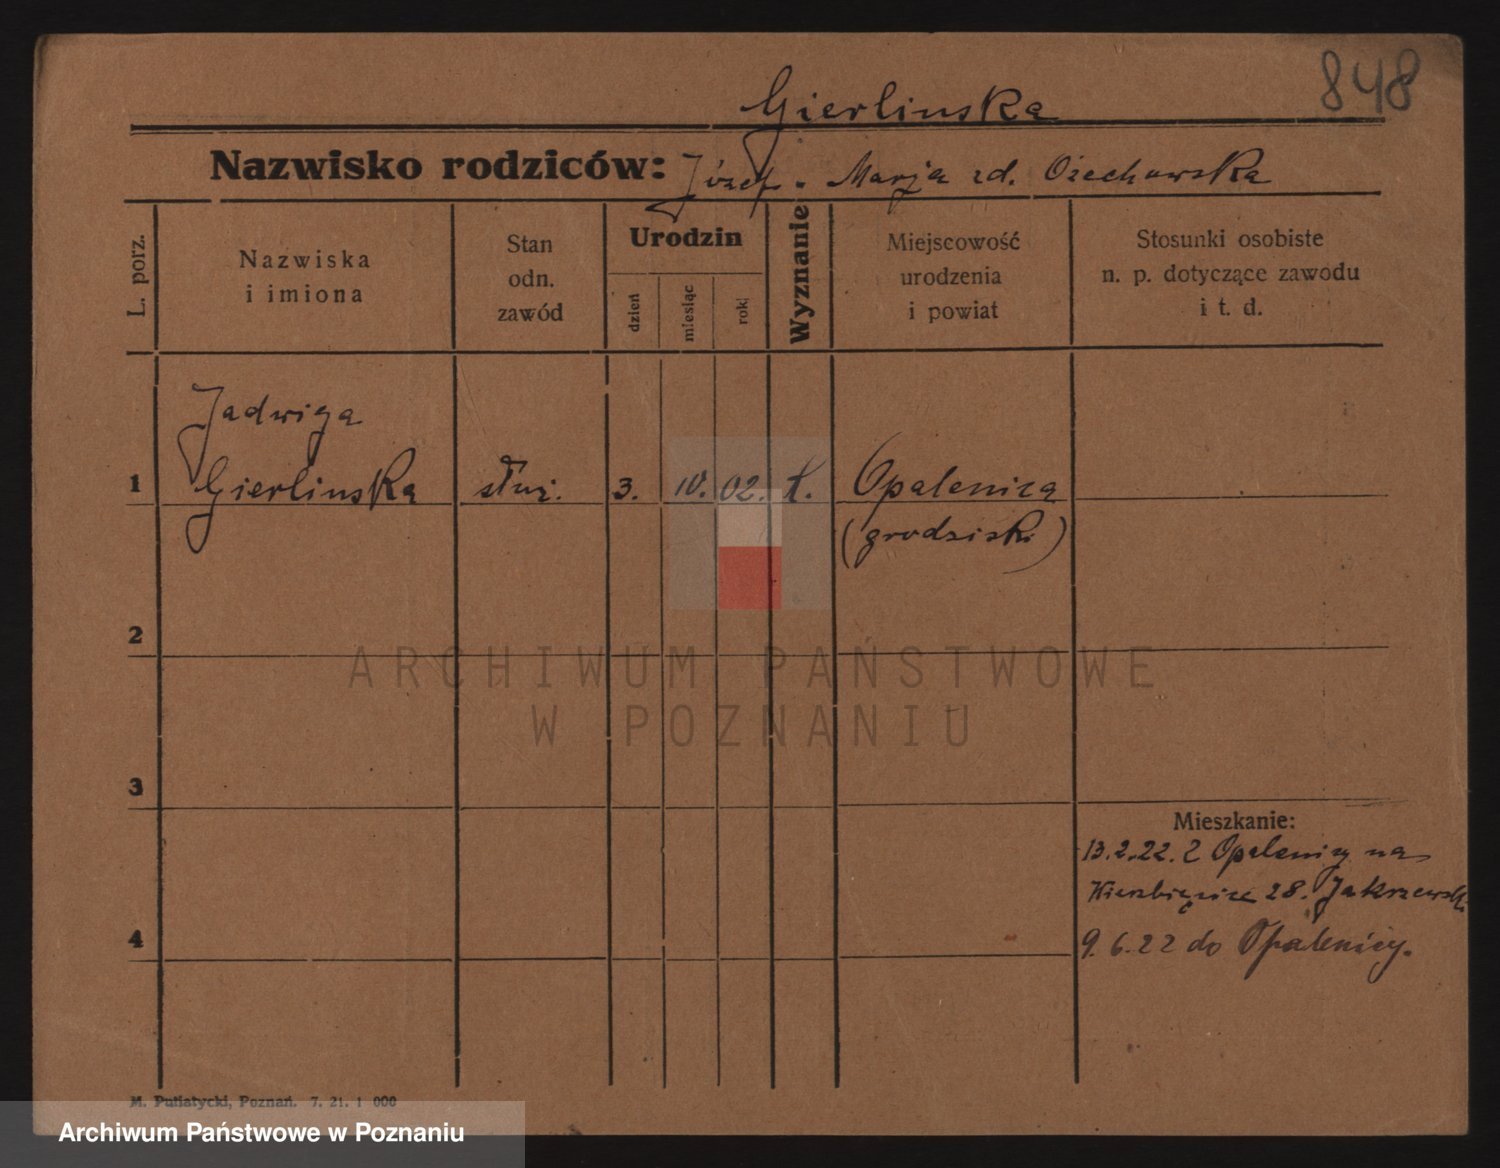 848
Gierlinska
Nazwisko rodziców: Józef. Marja zd. Ożechowska
L. porz.
Nazwiska
i imiona
Stan
odn.
zawód
Urodzin
dzień
miesiąc
rok
Wyznanie
Miejscowość
urodzenia
i powiat
Stosunki osobiste
n. p. dotyczące zawodu
i t. d.
Jadwiga
1 Gierlinska służ. 3. 10. 02. k. Opalenica
(grodziski)
2
ARCHIWUM PAŃSTWOWE
W POZNANIU
3
Mieszkanie:
13.2.22. z Opalenicy na
28.
4 9.6.22 do Opalenicy.
M. Putiatycki, Poznań. 7. 21. 1 000
Archiwum Państwowe w Poznaniu